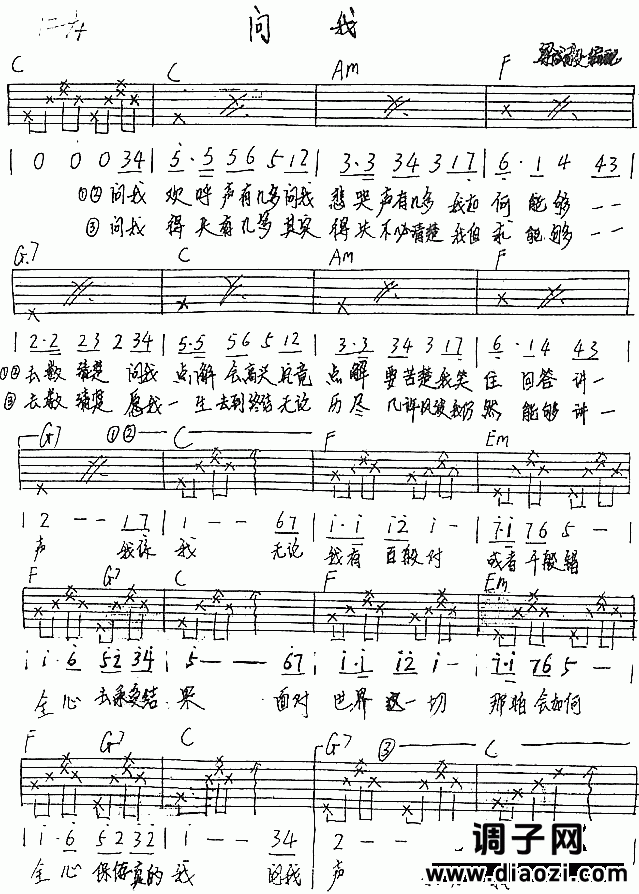 问 我
C C Am F
| 0 0 0 34 | 5·5 56 5 12 | 3·3 34 3 17 | 6·1 4 43
①② 问我 欢呼声有几多问我 悲哭声有几多 我如何能够 一一
③ 问我 得失有几多其实 得失不必清楚 我但求能够 一一
G7 C Am F
| 2·2 23 2 34 | 5·5 56 5 12 | 3·3 34 3 17 | 6·14 43
①② 去数清楚 问我 点解会高兴究竟 点解要苦楚我笑住回答讲一
③ 去数清楚 愿我一生去到终结无论 历尽几许风波我仍然能够讲一
G7 ①② C F Em
| 2 - - 17 | 1 - - 67 | i·i i2 i - | 7·i 76 5 - |
声 我係我 无论 我有百般对 或者千般错
F G7 C F Em
i i·6 52 34 | 5 - - 67 | i·i i2 i - | 7·i 76 5 -
全心去承受结果 面对世界这一切 那怕会如何
F G7 C G7 ③ C
| i i·6 52 32 | 1 - - 34 | 2 - -
全心保存真的我 问我 声
调子网
www.diaozi.com